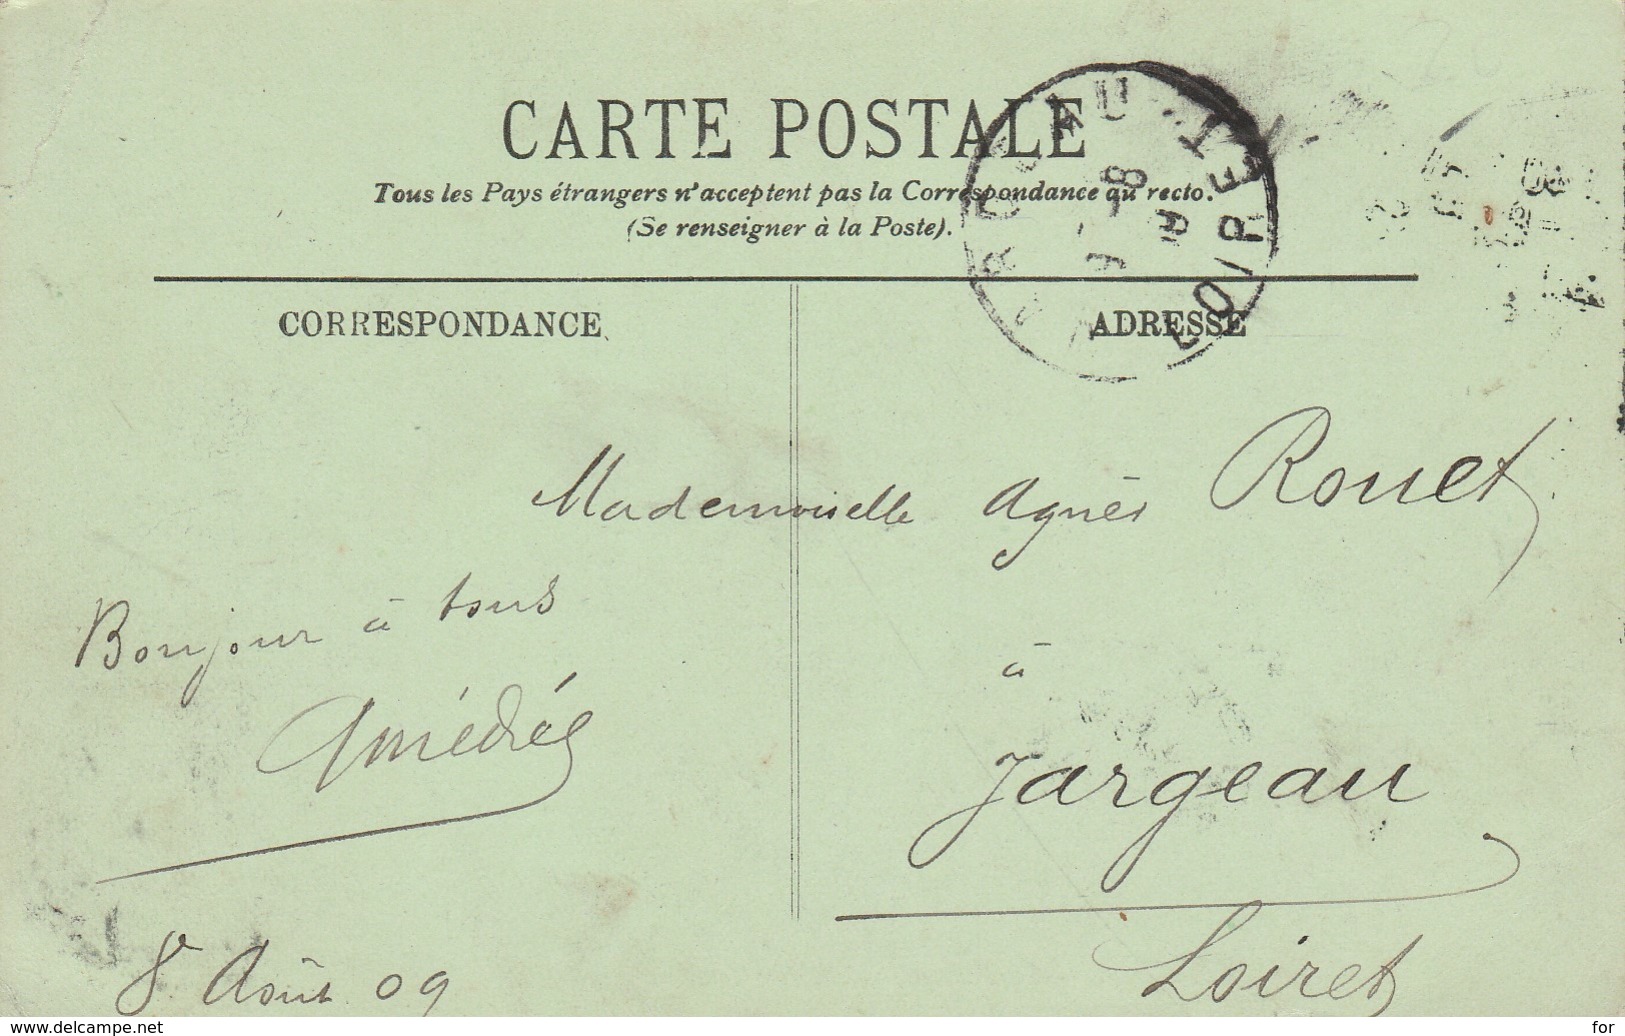 CARTE POSTALE
Tous les Pays étrangers n'acceptent pas la Correspondance au recto.
(Se renseigner à la Poste).
CORRESPONDANCE
ADRESSE
LOIRET
Mademoiselle Agnès Rouet
à
Jargeau
Loiret
Bonjour à tous
Amédée
8 Août 09
www.delcampe.net
for